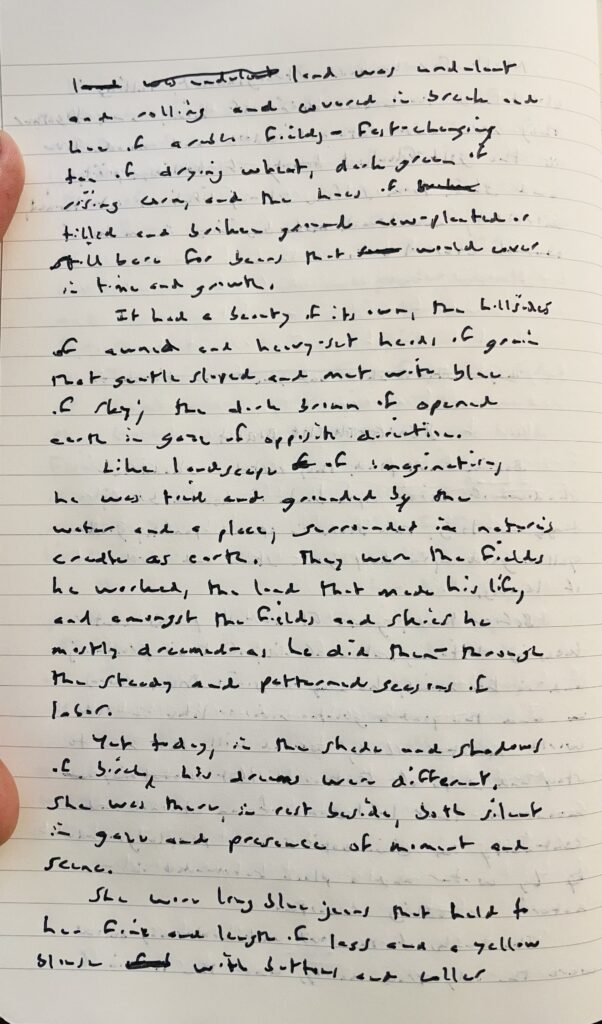 land was undulant land was undulant
and rolling and covered in break and
hue of arable fields - fast-changing
tan of drying wheat, dark green of
rising corn, and the hues of
tilled and broken ground new-planted or
still bare for beans that would cover
in time and growth.
It had a beauty of its own, the hillsides
of awned and heavy-set heads of grain
that gentle sloped and met with blue
of sky; the dark brown of opened
earth in gaze of opposit direction.
Like landscape of imagination,
he was tied and grounded by the
water and a place, surrounded in nature's
cradle as earth. They were the fields
he worked, the land that made his life,
and amongst the fields and skies he
mostly dreamed - as he did then - through
the steady and patterned seasons of
labor.
Yet today, in the shade and shadows
of birch, his dreams were different.
She was there, in rest beside, both silent
in gaze and presence of moment and
scene.
She wore long blue jeans that held to
her fine and length of legs and a yellow
blouse with buttons and collar